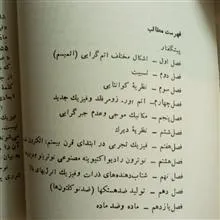 فهرست مطالب
پیشگفتار
فصل اول - اشکال مختلف اتم‌گرایی (اتمیسم)
فصل دوم - نسبیت
فصل سوم - نظریهٔ کوانتایی
فصل چهارم - اتم بور، زومرفلد و فیزیک جدید
فصل پنجم - مکانیک موجی و عدم جبرگرایی
فصل ششم - نظریهٔ دیراک
فصل هفتم - فیزیک تجربی در ابتدای قرن بیستم: الکترون
فصل هشتم - نوترون رادیواکتیویته مصنوعی نوترینو
فصل نهم - شتاب‌دهنده‌های ذرات و فیزیک انرژیهای
فصل دهم - تولید ضدهستکها (ضدنوکلئون‌ها)
فصل یازدهم - ماده و ضد ماده